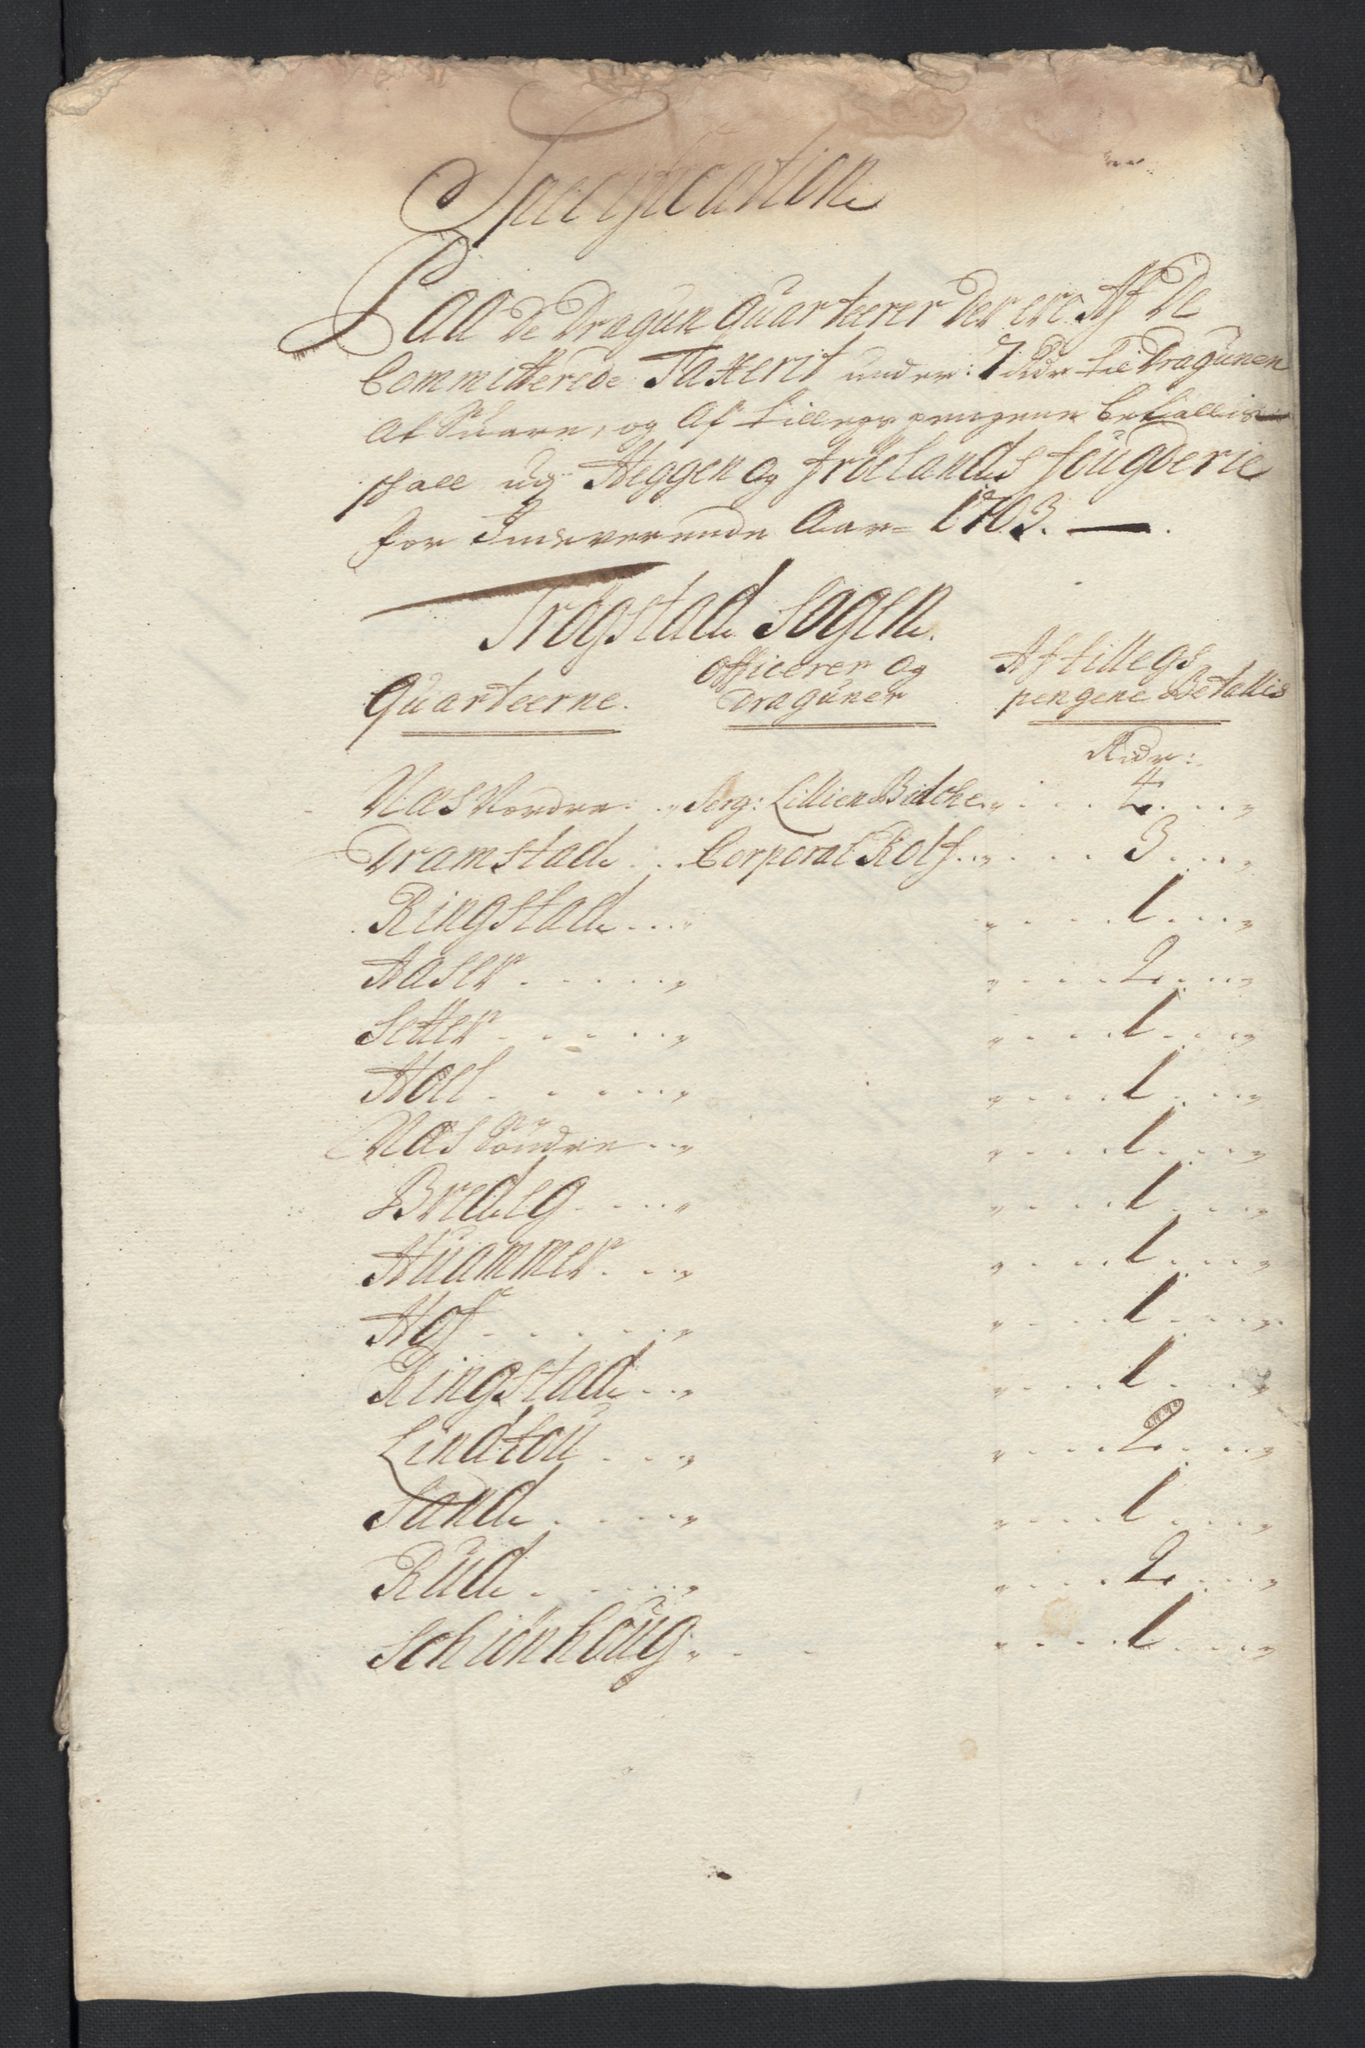 Specification
Paa de Dragun quarteerer der ere Af De
Committerede Taxerit under 7 Rdr til Dragunen
At Svare, og Af tillegs pengene betallis
skall udj Heggen og Fröelands fougderie
for Indeverende Aar 1703.
Trögstad Sogen.
Quarteerne. Officerer og Dragüner Af tillegs pengene Betallis
Rdr:
Næs Nordre Serg: Lillien Bidche 4
Dramstad Corporal Rolf 3
Ringstad 1
Haser 2
Setter 1
Hoel 1
Næs Söndre 1
Bredeg 1
Huammer 1
Hof 1
Ringstad 1
Lindtou 2
Sand 1
Rud 2
Schiönhoug 1